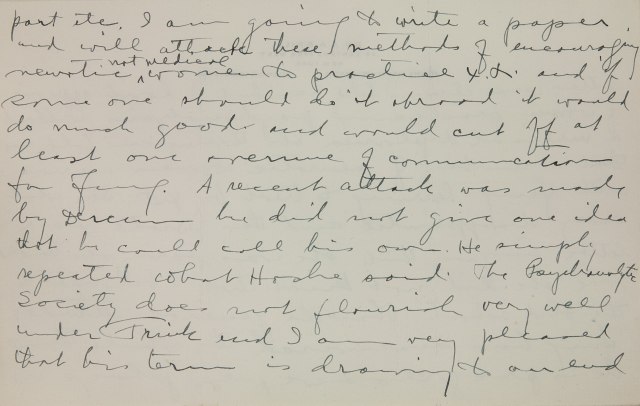 part etc. I am going to write a paper
and will attack these methods of encouraging
neurotic not medical women to practice ψ.A. and if
some one should do it abroad it would
do much good and would cut off at
least one avenue of communication
for Jung. A recent attack was made
by Dercum he did not give one idea
that he could call his own. He simply
repeated what Hoche said. The Psychoanalytic
Society does not flourish very well
under Frink and I am very pleased
that his term is drawing to an end